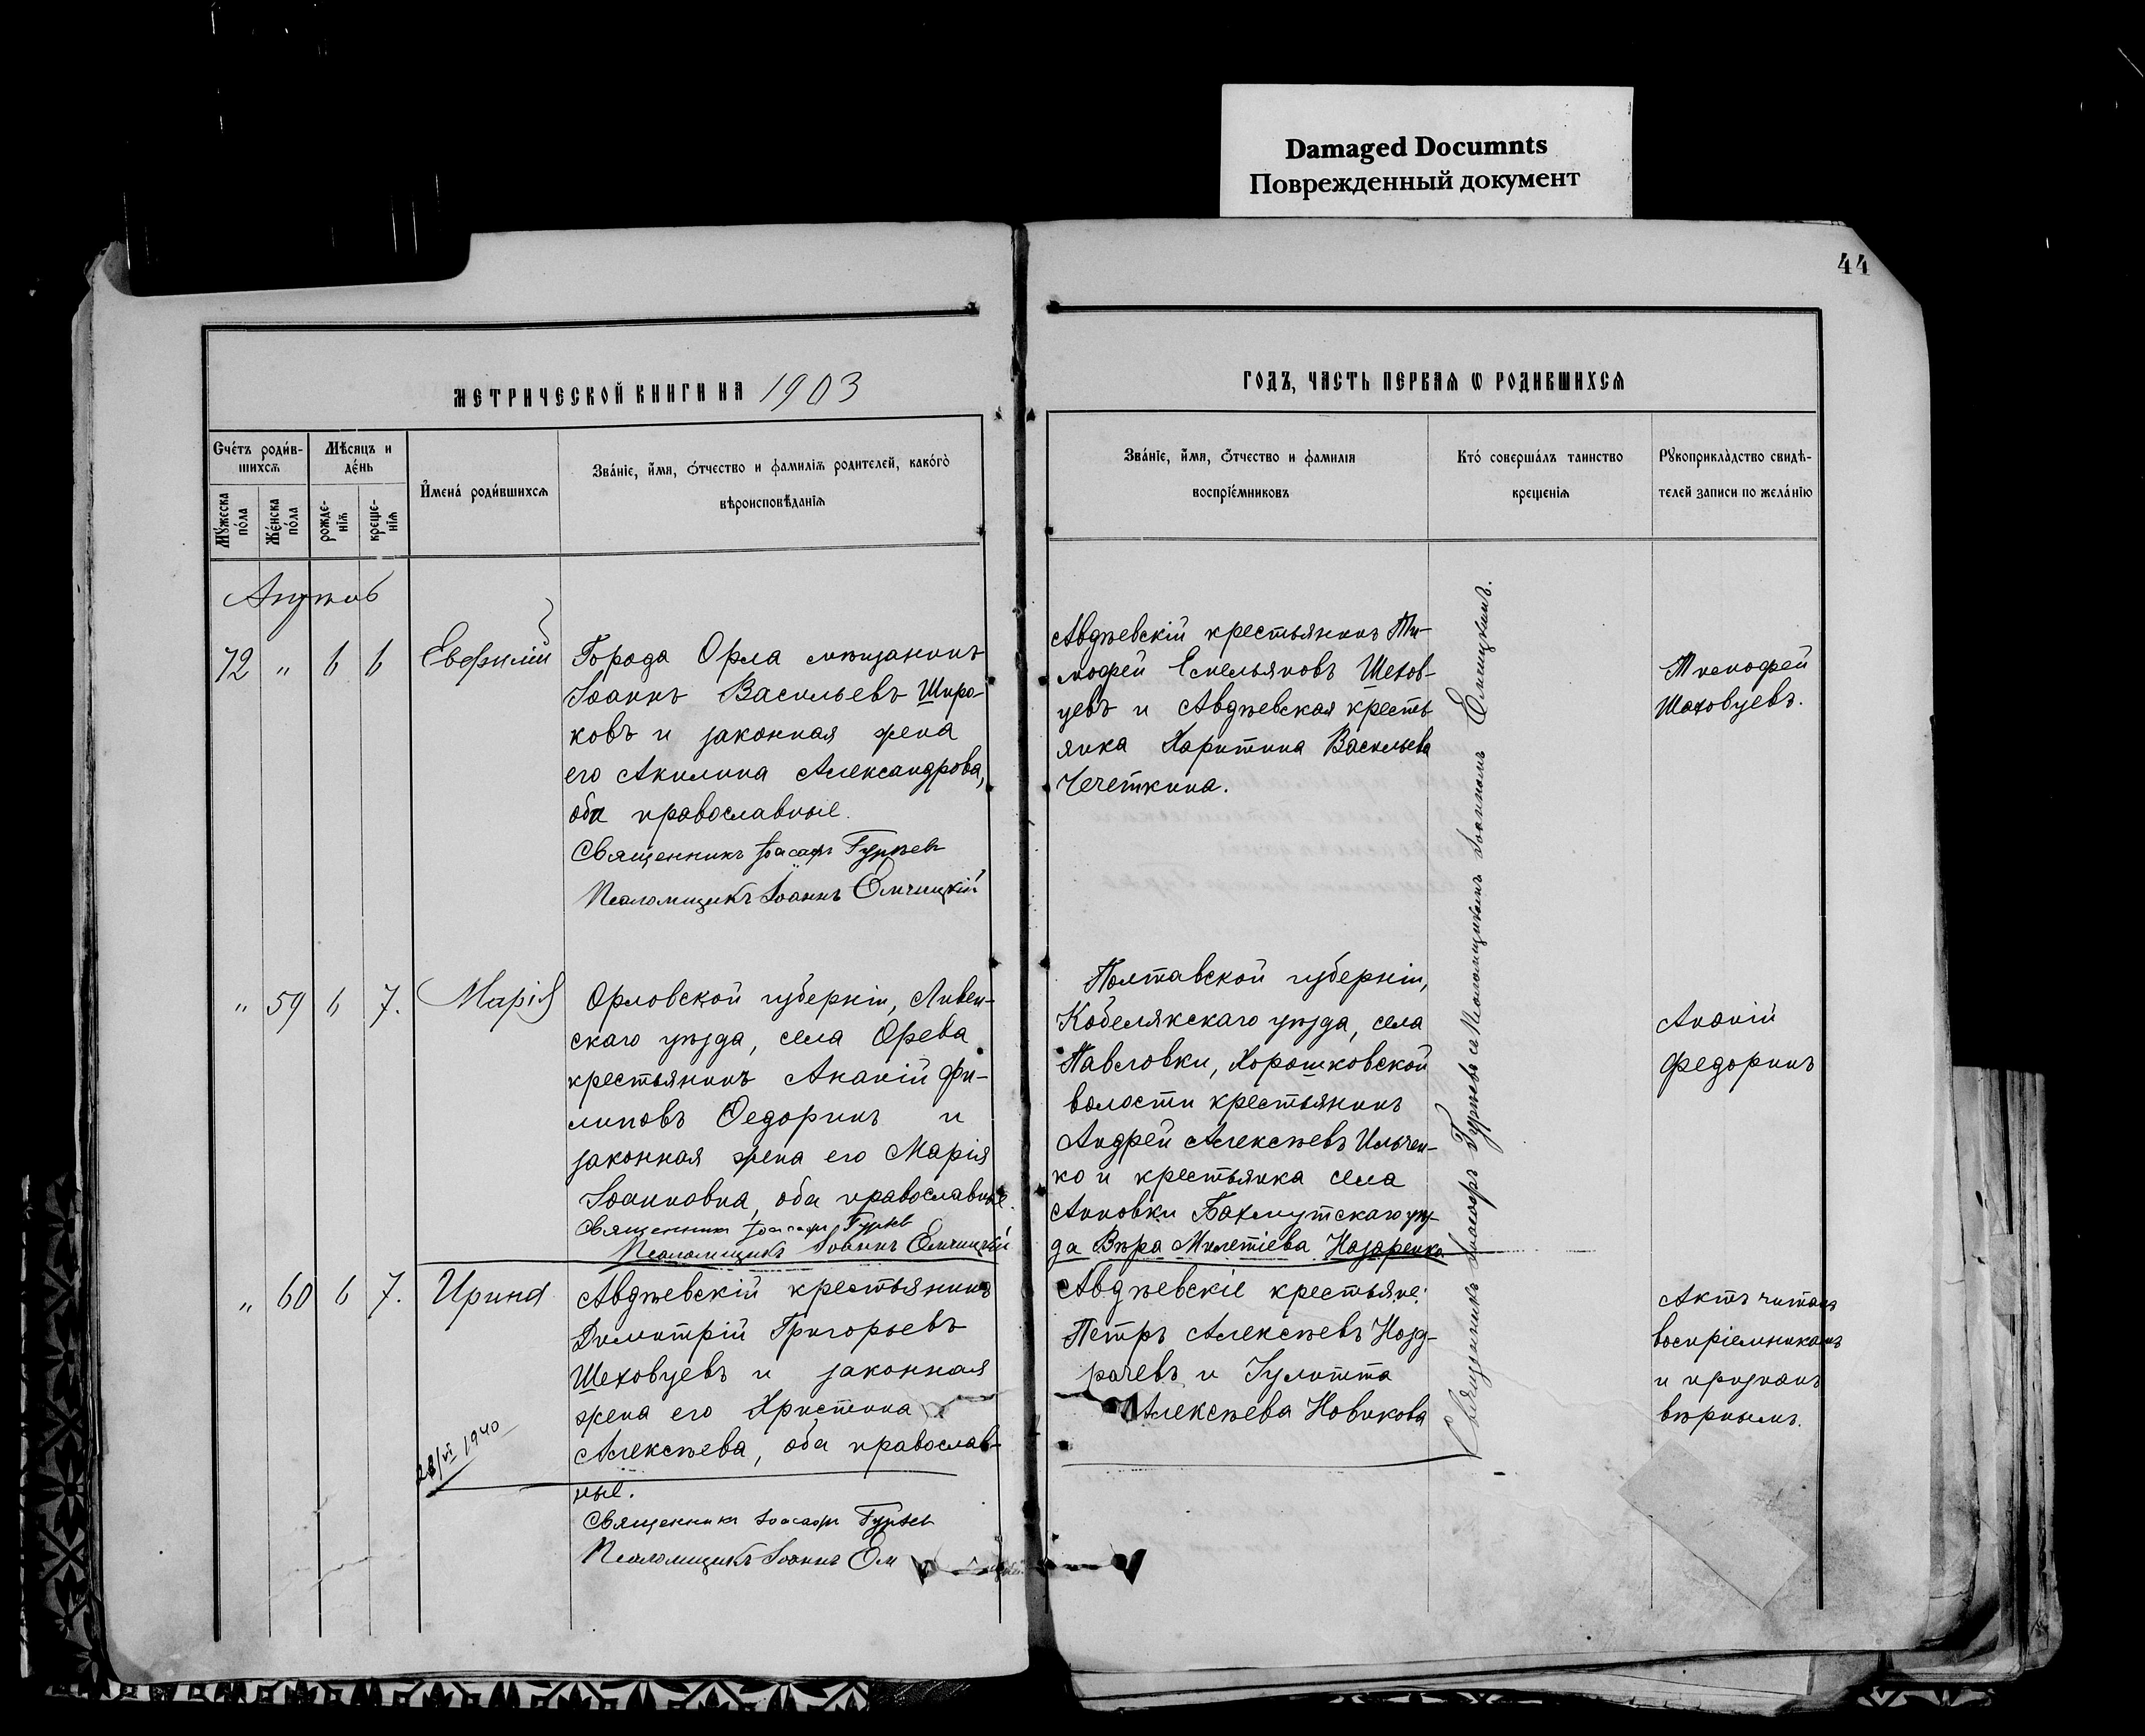 Damaged Documnts
Поврежденный документ
44
МЕТРИЧЕСКОЙ КНИГИ НА 1903
ГОДЪ, ЧАСТЬ ПЕРВАЯ Ѡ РОДИВШИХСЯ
Счетъ родив-
шихся
Мѣсяцъ и
день
Мужеска
пола
Женска
пола
рожде-
нія
креще-
нія
Имена родившихся
Званіе, имя, отчество и фамилія родителей, какого
вѣроисповѣданія
Званіе, имя, отчество и фамилія
воспріемниковъ
Кто совершалъ таинство
крещенія
Рукоприкладство свидѣ-
телей записи по желанію
Августъ
72 " 6 6 Евфимій
Города Орла мѣщанинъ
Іоаннъ Васильевъ Широ-
ковъ и законная жена
его Акилина Александрова,
оба православные.
Священникъ Іоасафъ Гурьевъ
Псаломщикъ Іоаннъ
Авдѣевскій крестьянинъ Ти-
мофей Емельяновъ Шехов-
цевъ и Авдѣевская кресть
янка Харитина Васильева
Чечеткина.
Тимофей
Шаховцевъ.
" 59 6 7. Марія
Орловской губерніи, Ливен-
скаго уѣзда, села
крестьянинъ Ананій Фи-
липовъ Ѳедоринъ и
законная жена его Марія
Іоанновна, оба православные.
Священникъ Іоасафъ Гурьевъ
Псаломщикъ Іоаннъ
Полтавской губерніи,
Кобелякскаго уѣзда, села
Павловки, Хорошковской
волости крестьянинъ
Андрей Алексѣевъ Ильчен-
ко и крестьянка села
Анновки Бахмутскаго уѣз-
да Вѣра Милетіева Назаренко
Ананій
Федоринъ
" 60 6 7. Ирина
Авдѣевскій крестьянинъ
Димитрій Григорьевъ
Шеховцевъ и законная
жена его Христина
Алексѣева, оба православ-
ные.
Священникъ Іоасафъ Гурьевъ
Псаломщикъ Іоаннъ
28/VI 1940
Авдѣевскіе крестьяне:
Петръ Алексѣевъ Нозд-
рачевъ и Іулитта
Алексѣева Новикова
Актъ читанъ
воспріемникамъ
и признанъ
вѣрнымъ.
Священникъ Іоасафъ Гурьевъ и Псаломщикомъ Іоанномъ